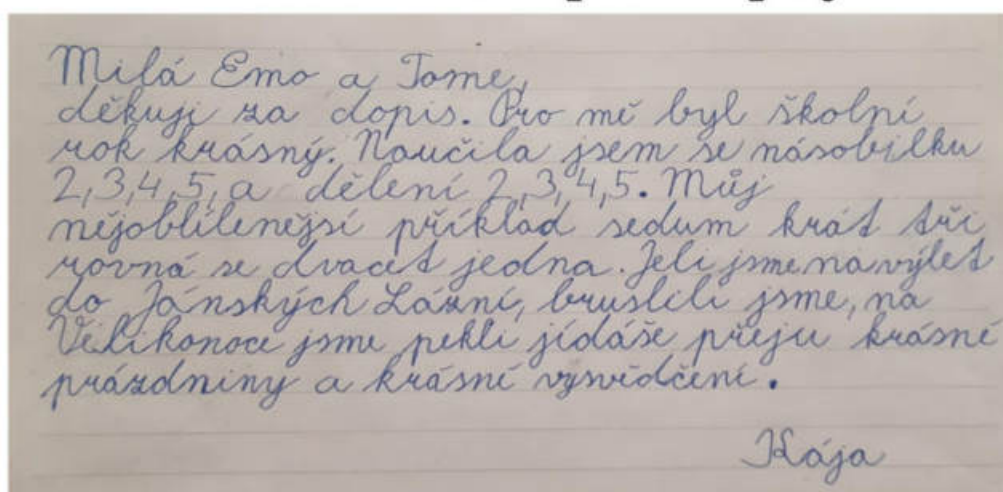 Milá Emo a Tome,
děkuji za dopis. Pro mě byl školní
rok krásný. Naučila jsem se násobilku
2,3,4,5, a dělení 2,3,4,5. Můj
nějoblílenějsí příklad sedum krát tři
rovná se dvacet jedna. Jeli jsme na výlet
do Jánských Lázní, bruslili jsme, na
Velikonoce jsme pekli jídáše přeju krásné
prázdniny a krásní vysvědčení.
Kája